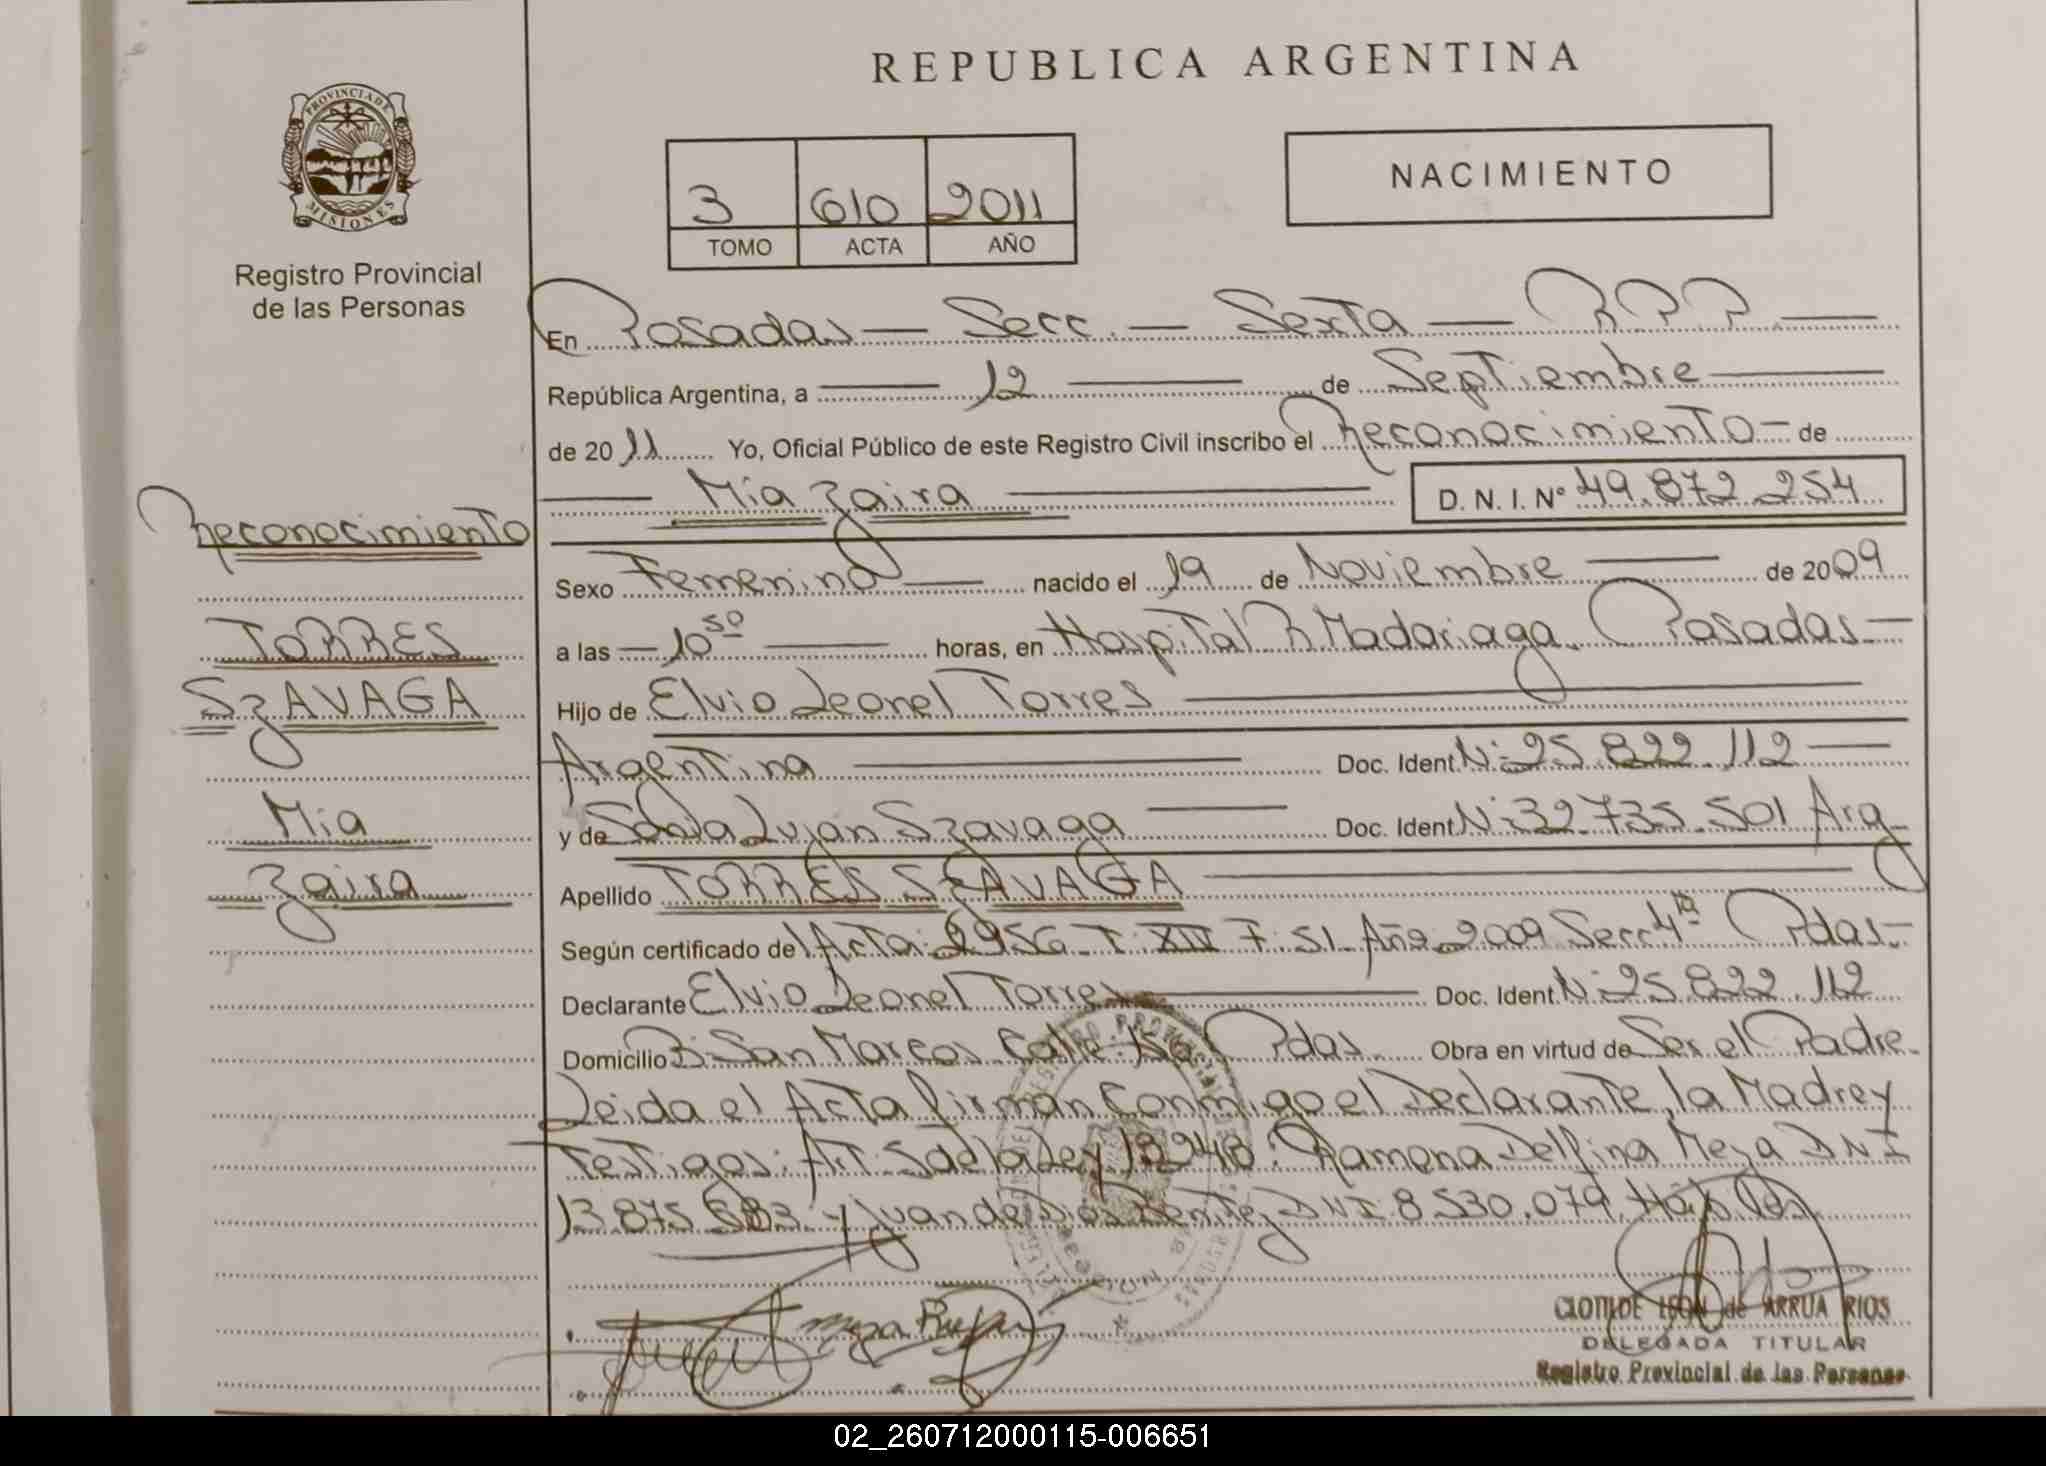 REPUBLICA ARGENTINA
PROVINCIA DE
MISIONES
Registro Provincial
de las Personas
3 610 2011
TOMO ACTA AÑO
NACIMIENTO
En Posadas — Secc. — Sexta — R P P. —
República Argentina, a — 12 — de Septiembre —
de 2011 Yo, Oficial Público de este Registro Civil inscribo el Reconocimiento — de
— Mía Zaira — D. N. I. Nº 49.872.254
Reconocimiento
TORRES
SZAVAGA
Mía
Zaira
Sexo Femenino — nacido el 19 de Noviembre — de 2009
a las — 10 50 — horas, en Hospital R Madariaga. Posadas —
Hijo de Elvio Leonel Torres —
Argentina — Doc. Ident. Nº 25.822.112 —
y de Luján Szavaga — Doc. Ident. Nº 32.735.501 Arg
Apellido TORRES SZAVAGA —
Según certificado de Acta: 2956 T: XIII F: 51 Año 2009 Secc 4ta Pdas —
Declarante Elvio Leonel Torres — Doc. Ident. Nº 25.822.112
Domicilio Bº San Marcos Calle Pdas. Obra en virtud de Ser el Padre.
Leida el Acta firman Conmigo el Declarante, la Madre y
Testigos: Art. de la Ley 18248: Ramona Delfina Meza DNI
13.875. y Juan de Dios Benitez DNI 8.530.079.
CLOTILDE LEON de ARRUA RIOS
DELEGADA TITULAR
Registro Provincial de las Personas
02_260712000115-006651